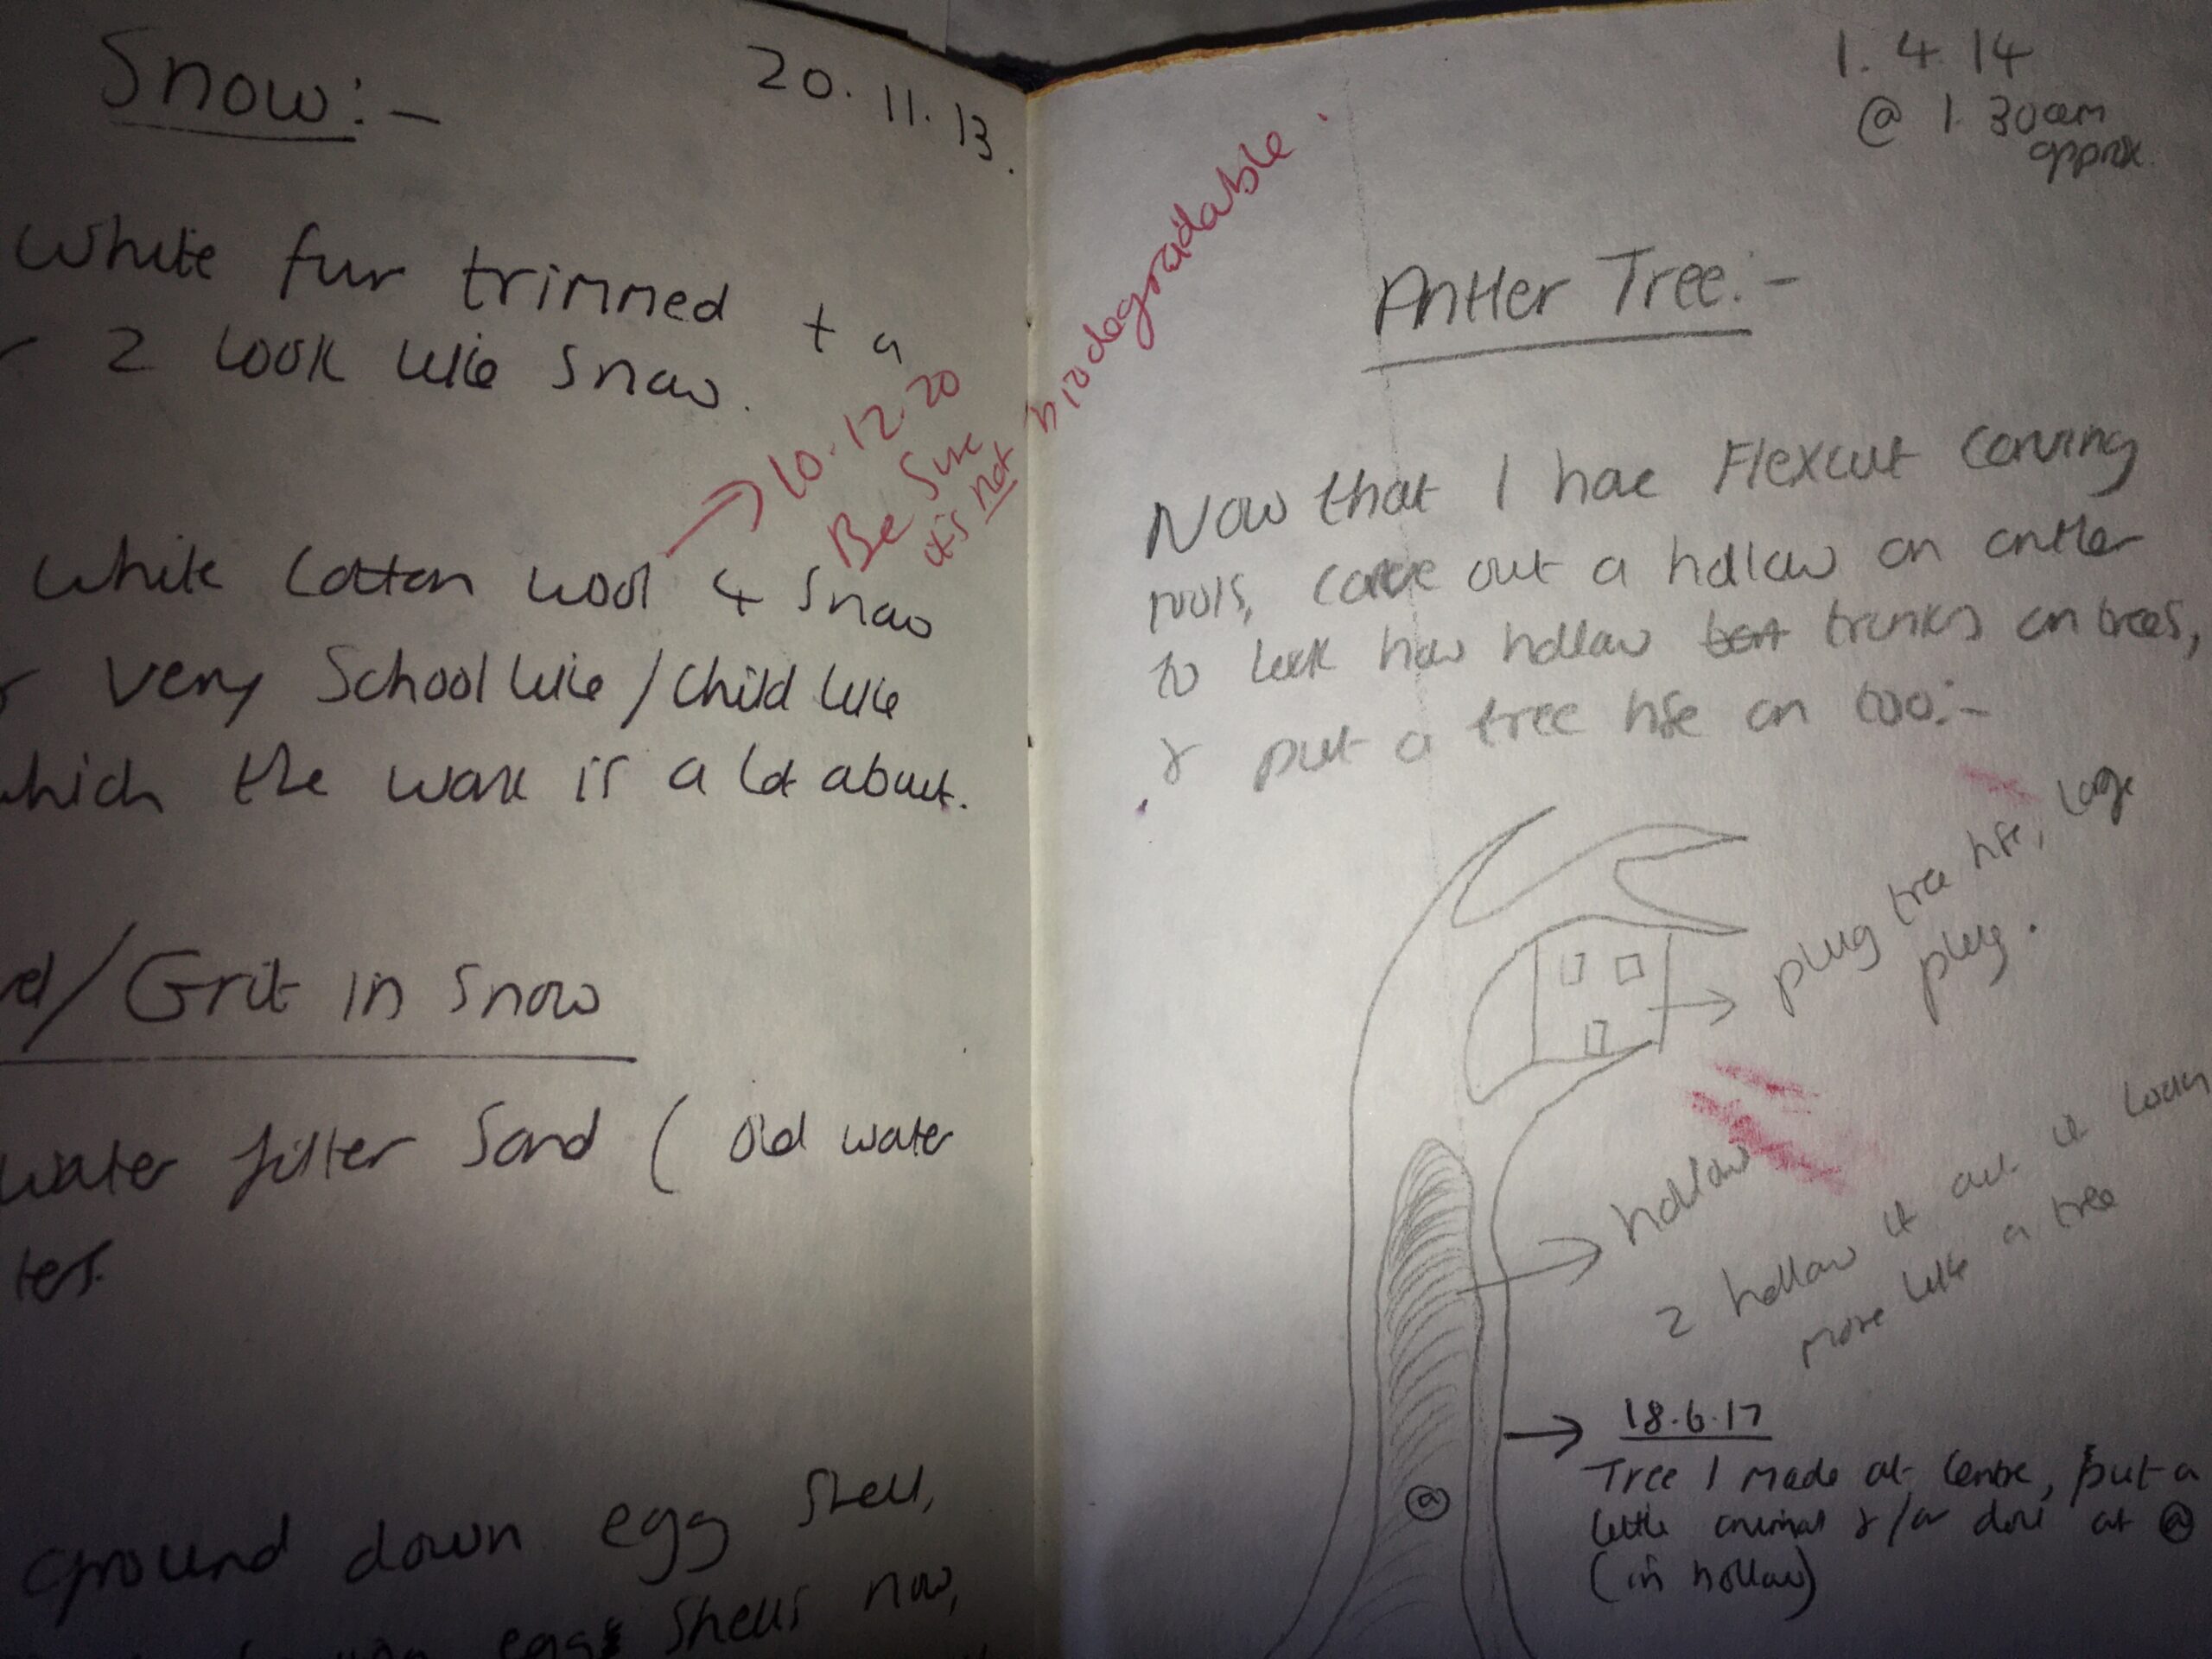 Snow:-
20.11.13.
White fur trimmed + a
2 look like snow.
→ 10.12.20
Be Sure
it is not biodegradable.
White Cotton wool 4 Snow
very School like / child like
which the work is a lot about.
/Grit in Snow
water filter Sand ( old water
ters.
ground down egg shell,
eggs shells now,
1.4.14
@ 1.30am
approx.
Antler Tree:-
Now that I have Flexcut carving
tools, carve out a hollow on antler
to look how hollow trunks on trees,
& put a tree hse on too:-
plug tree hse, large
plug.
hollow
2 hollow it out it looks
more like a tree
18.6.17
Tree I made at Centre, put a
little animal & /or door at @
(in hollow)
@